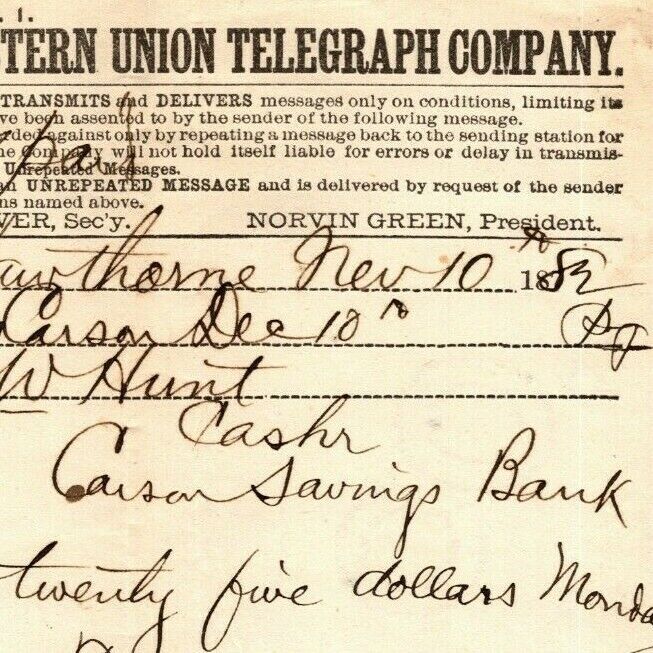 . 1.
STERN UNION TELEGRAPH COMPANY.
TRANSMITS and DELIVERS messages only on conditions, limiting its
ve been assented to by the sender of the following message.
rded against only by repeating a message back to the sending station for
he Company will not hold itself liable for errors or delay in transmis-
Unrepeated Messages.
an UNREPEATED MESSAGE and is delivered by request of the sender
ns named above.
VER, Sec'y. NORVIN GREEN, President.
awthorne Nev 10 1882
Carson Dec 10
W Hunt
Cashr
Carson Savings Bank
twenty five dollars Monda